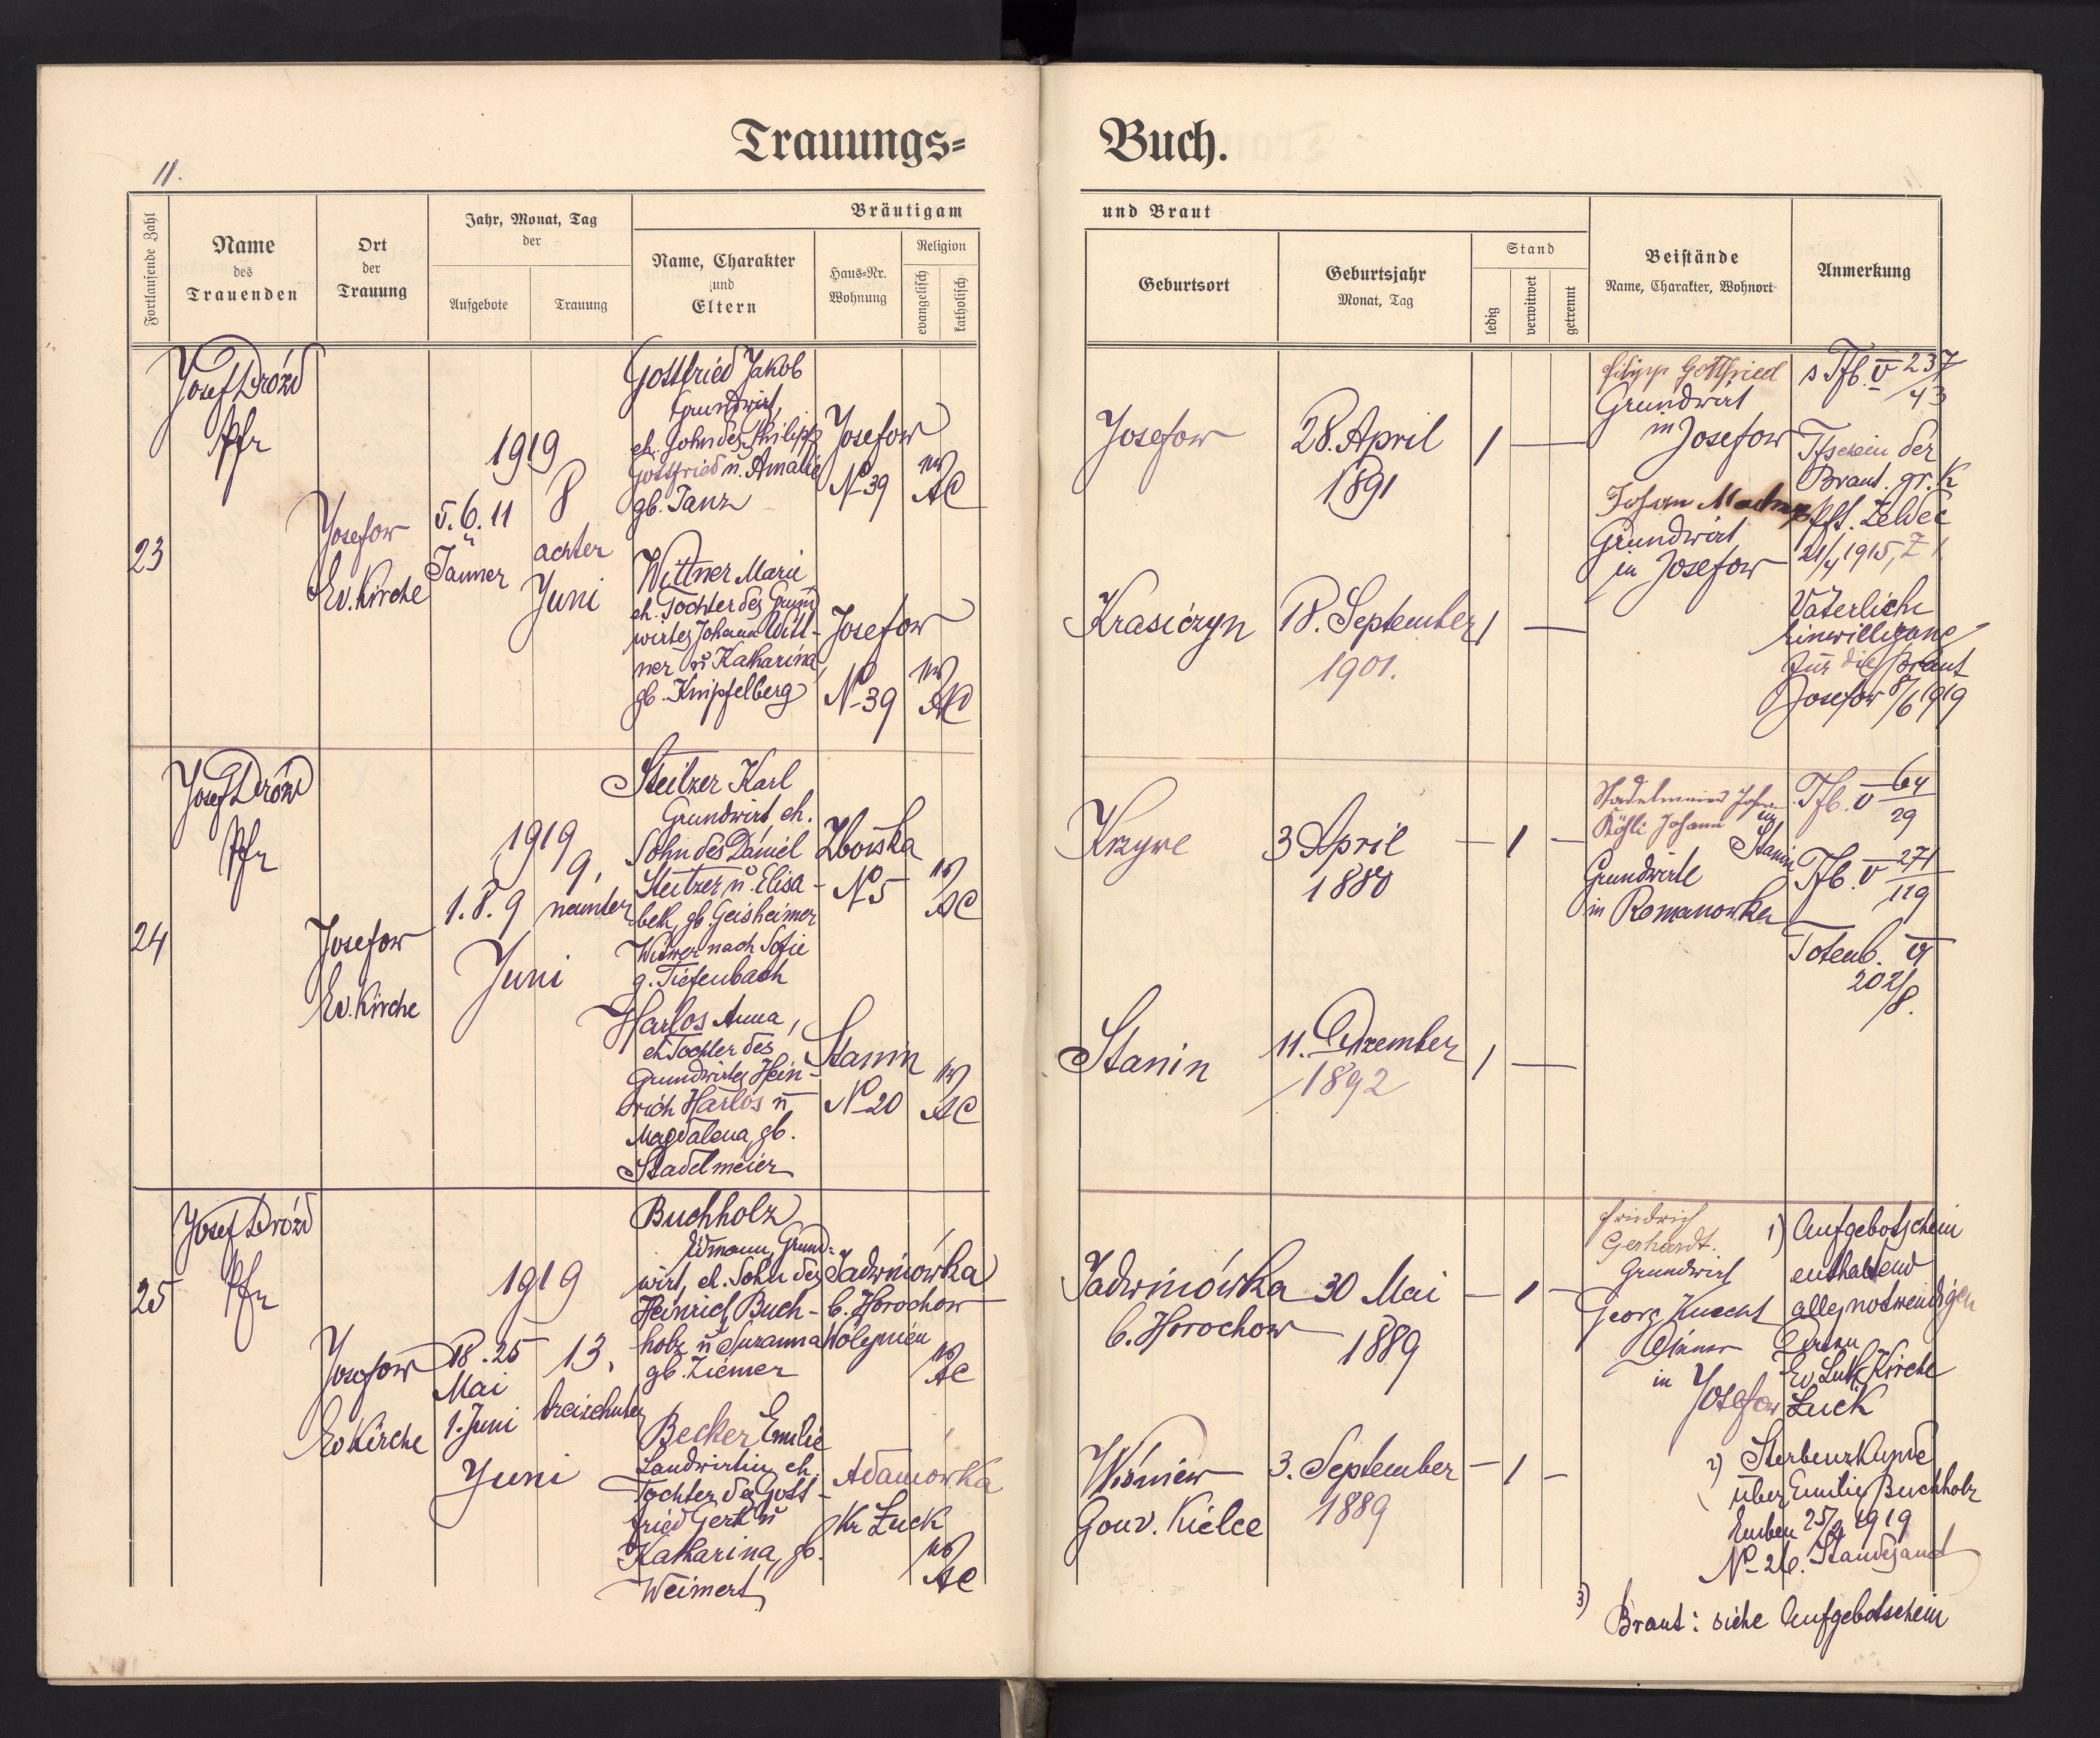 11.
Trauungs=
Buch.
Fortlaufende Zahl
Name
des
Trauenden
Ort
der
Trauung
Jahr, Monat, Tag
der
Aufgebote
Trauung
Bräutigam
und Braut
Name, Charakter
und
Eltern
Haus=Nr.
Wohnung
Religion
evangelisch
katholisch
Geburtsort
Geburtsjahr
Monat, Tag
Stand
ledig
verwitwet
getrennt
Beistände
Name, Charakter, Wohnort
Anmerkung
23
Josef Drózd
Pfr
Josefow
Ev. Kirche
1919
5. 6. 11
Jänner
8
achter
Juni
Gottfried Jakob
Grundwirt,
eh. Sohn des Philipp
Gottfried u. Amalie
gb. Tanz
Josefow
No 39
AC
Wittner Marie
eh. Tochter des Grund
wirtes Johann Witt-
ner u Katharina,
gb. Knipfelberg
Josefow
No 39
AC
Josefow
28. April
1891
1
Krasiczyn
18. September
1901.
1
Filipp Gottfried
Grundwirt
in Josefow
Johann
Grundwirt
in Josefow
s Tfb. V 237/43
Tfschein der
Braut. gr. K
Pft. Zeldec
21/4 1915, Z 1
Väterliche
Einwilligung
für die Braut
Josefow 8/6 1919
24
Josef Drózd
Pfr
Josefow
Ev. Kirche
1919
1. 8. 9
9,
neunter
Juni
Steitzer Karl
Grundwirt eh.
Sohn des Daniel
Steitzer u. Elisa-
beth, gb. Geisheimer
Witwer nach Sofie
g. Tiefenbach
Zboiska
No 5
AC
Harlos Anna,
eh Tochter des
Grundwirtes Hein-
rich Harlos u
Magdalena, gb.
Stadelmeier
Stanin
No 20
AC
Krzywe
3 April
1880
1
Stanin
11. Dezember
1892
1
Stadelmeier Johann
Köhli Johann
in Stanin
Grundwirte
in Romanowka
Tfb. V 64/29
Tfb. V 271/119
Totenb. V
202/8.
25
Josef Drózd
Pfr
Josefow
Ev Kirche
1919
18. 25
Mai
1. Juni
13,
dreizehnter
Juni
Buchholz
Edmann, Grund-
wirt, eh. Sohn des
Heinrich Buch-
holz u Susanna
gb. Ziemer
Jadwinówka
b. Horochow
Wolynien
AC
Becker Emilie
Landwirtin eh.
Tochter des Gott-
fried Gerk u
Katharina, gb.
Weimert
Adamówka
Kr Łuck
AC
Jadwinówka
b. Horochow
30 Mai
1889
1
Wisniew
Gouv. Kielce
3. September
1889
1
Friedrich
Gerhardt.
Grundwirt
Georg Knecht
in Josefow
1) Aufgebotschein
enthaltend
alle notwendigen
Daten
Ev Luth Kirche
Łuck
2) Sterbeurkunde
über Emilie Buchholz
1919
No 26. Standesamt
3)
Braut: siehe Aufgebotschein